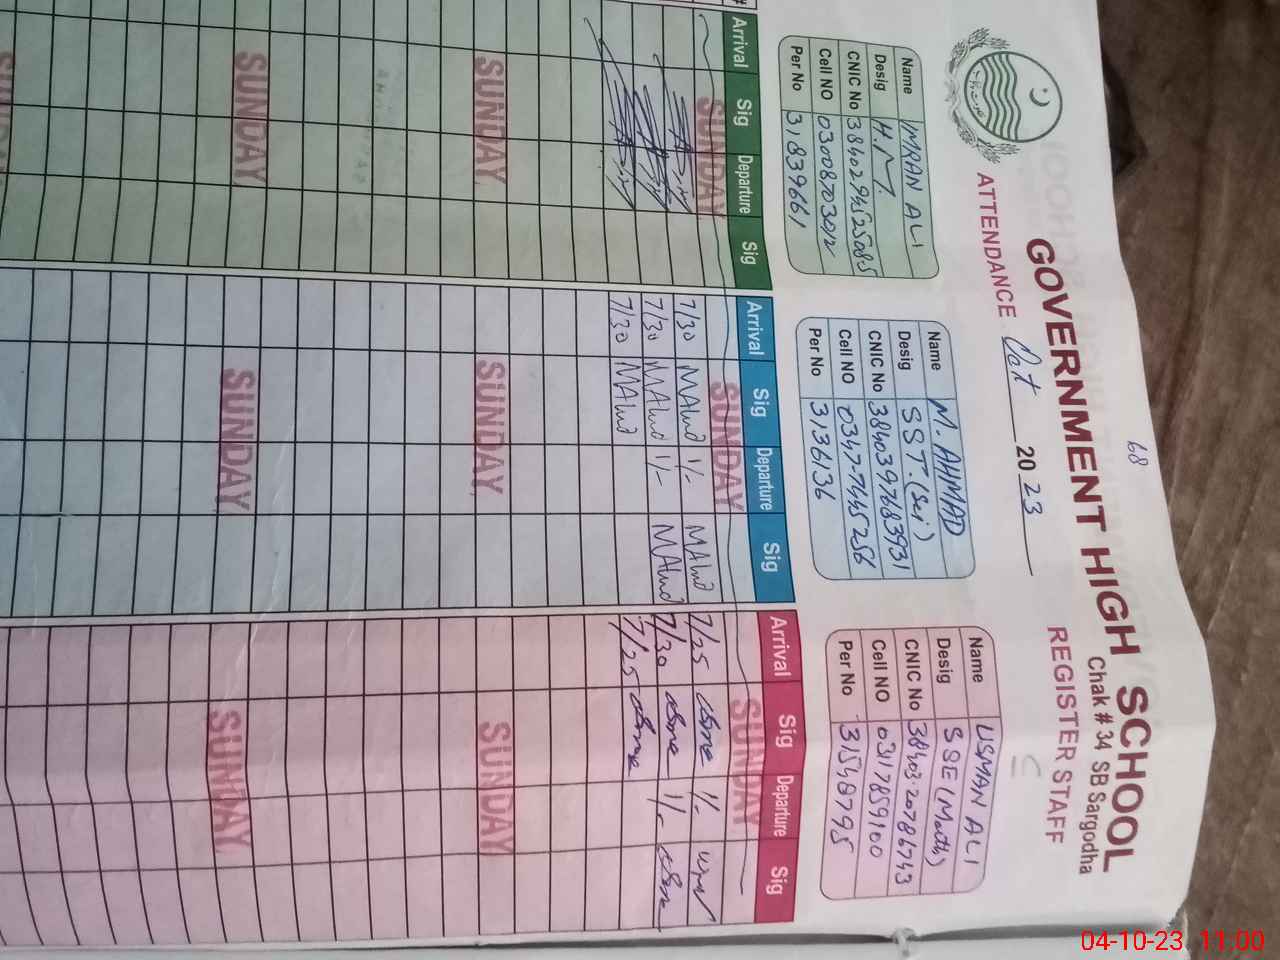 68
GOVERNMENT HIGH SCHOOL
Chak # 34 SB Sargodha
ATTENDANCE Oct 2023 REGISTER STAFF
Name IMRAN ALI
Desig H.M.
CNIC No
Cell NO 03008703012
Per No 31839661
Name M. AHMAD
Desig SST.(Sci)
CNIC No 3840397683931
Cell NO 0347-7645256
Per No 3136136
Name USMAN ALI
Desig SSE (Math)
CNIC No 38403-20786743
Cell NO 0317859100
Per No 31548795
Arrival Sig Departure Sig Arrival Sig Departure Sig Arrival Sig Departure Sig
SUNDAY SUNDAY SUNDAY
7/30 1/- 7/25 1/-
7/30 1/- 7/30 1/-
7/30 7/25
SUNDAY SUNDAY SUNDAY
SUNDAY SUNDAY SUNDAY
04-10-23 11:00